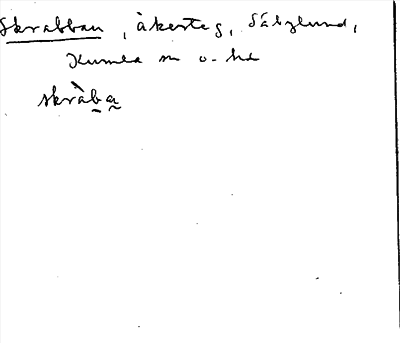 Skrabban, åkerteg, Sälzlund,
Kumla sn o. hd
skràba